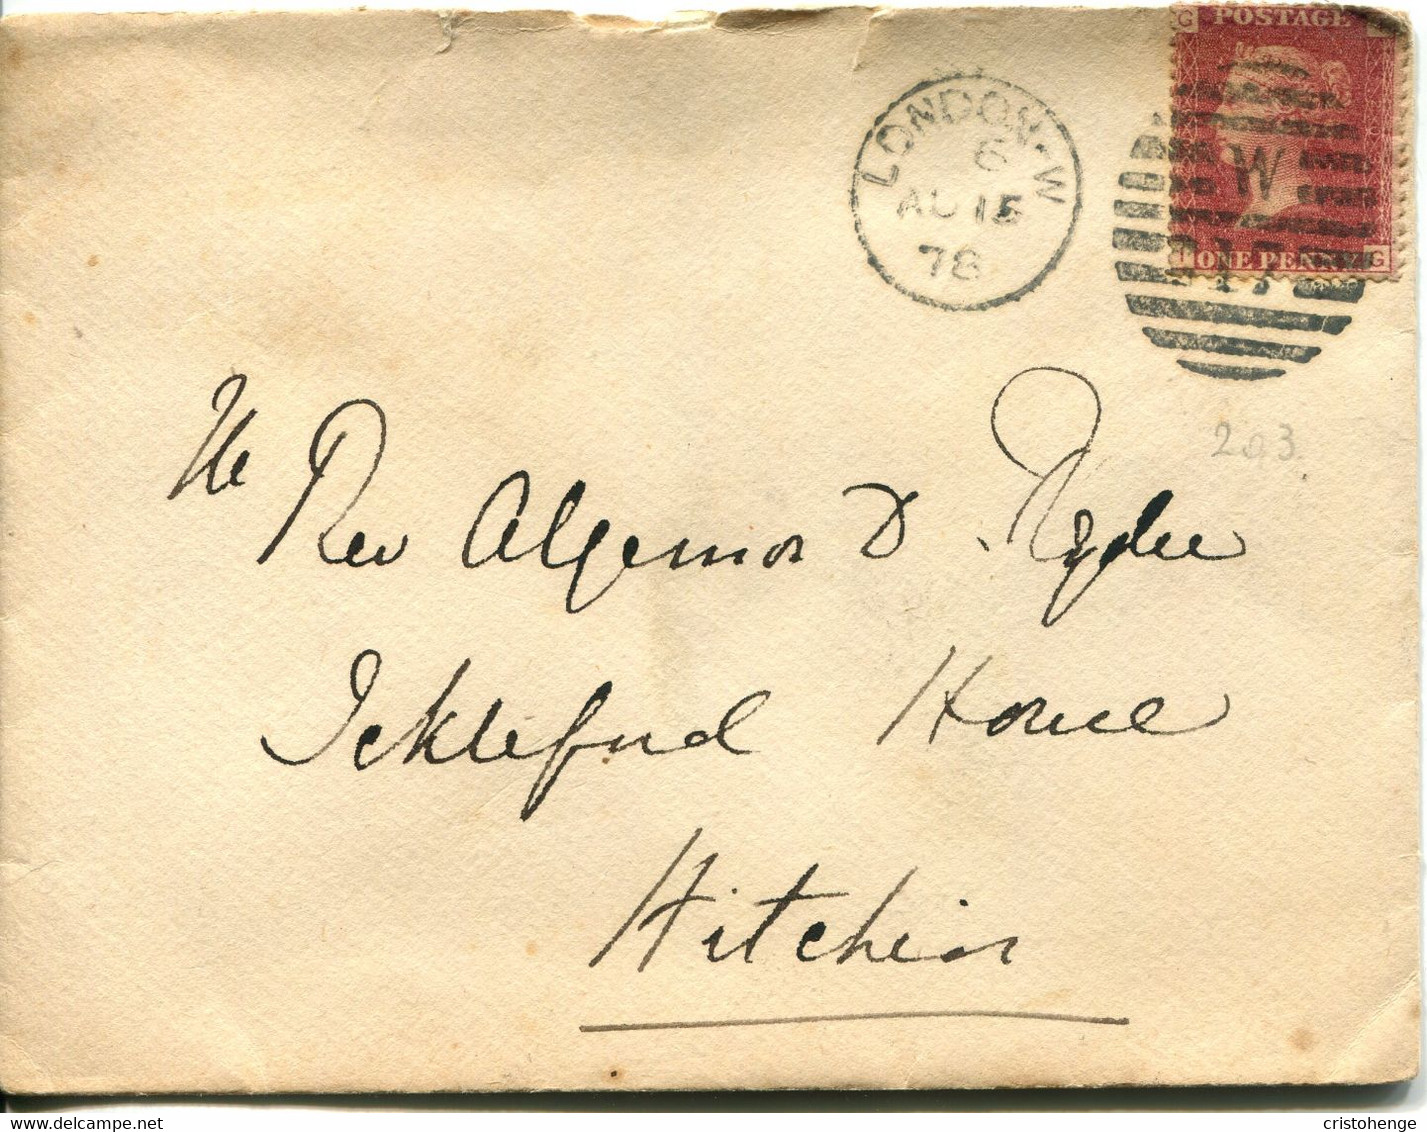 G POSTAGE
LONDON·W
6
AU 15
78
W
17
ONE PENNY G
203
The
Rev Algernon D. Ryder
Ickleford House
Hitchin
www.delcampe.net
cristohenge